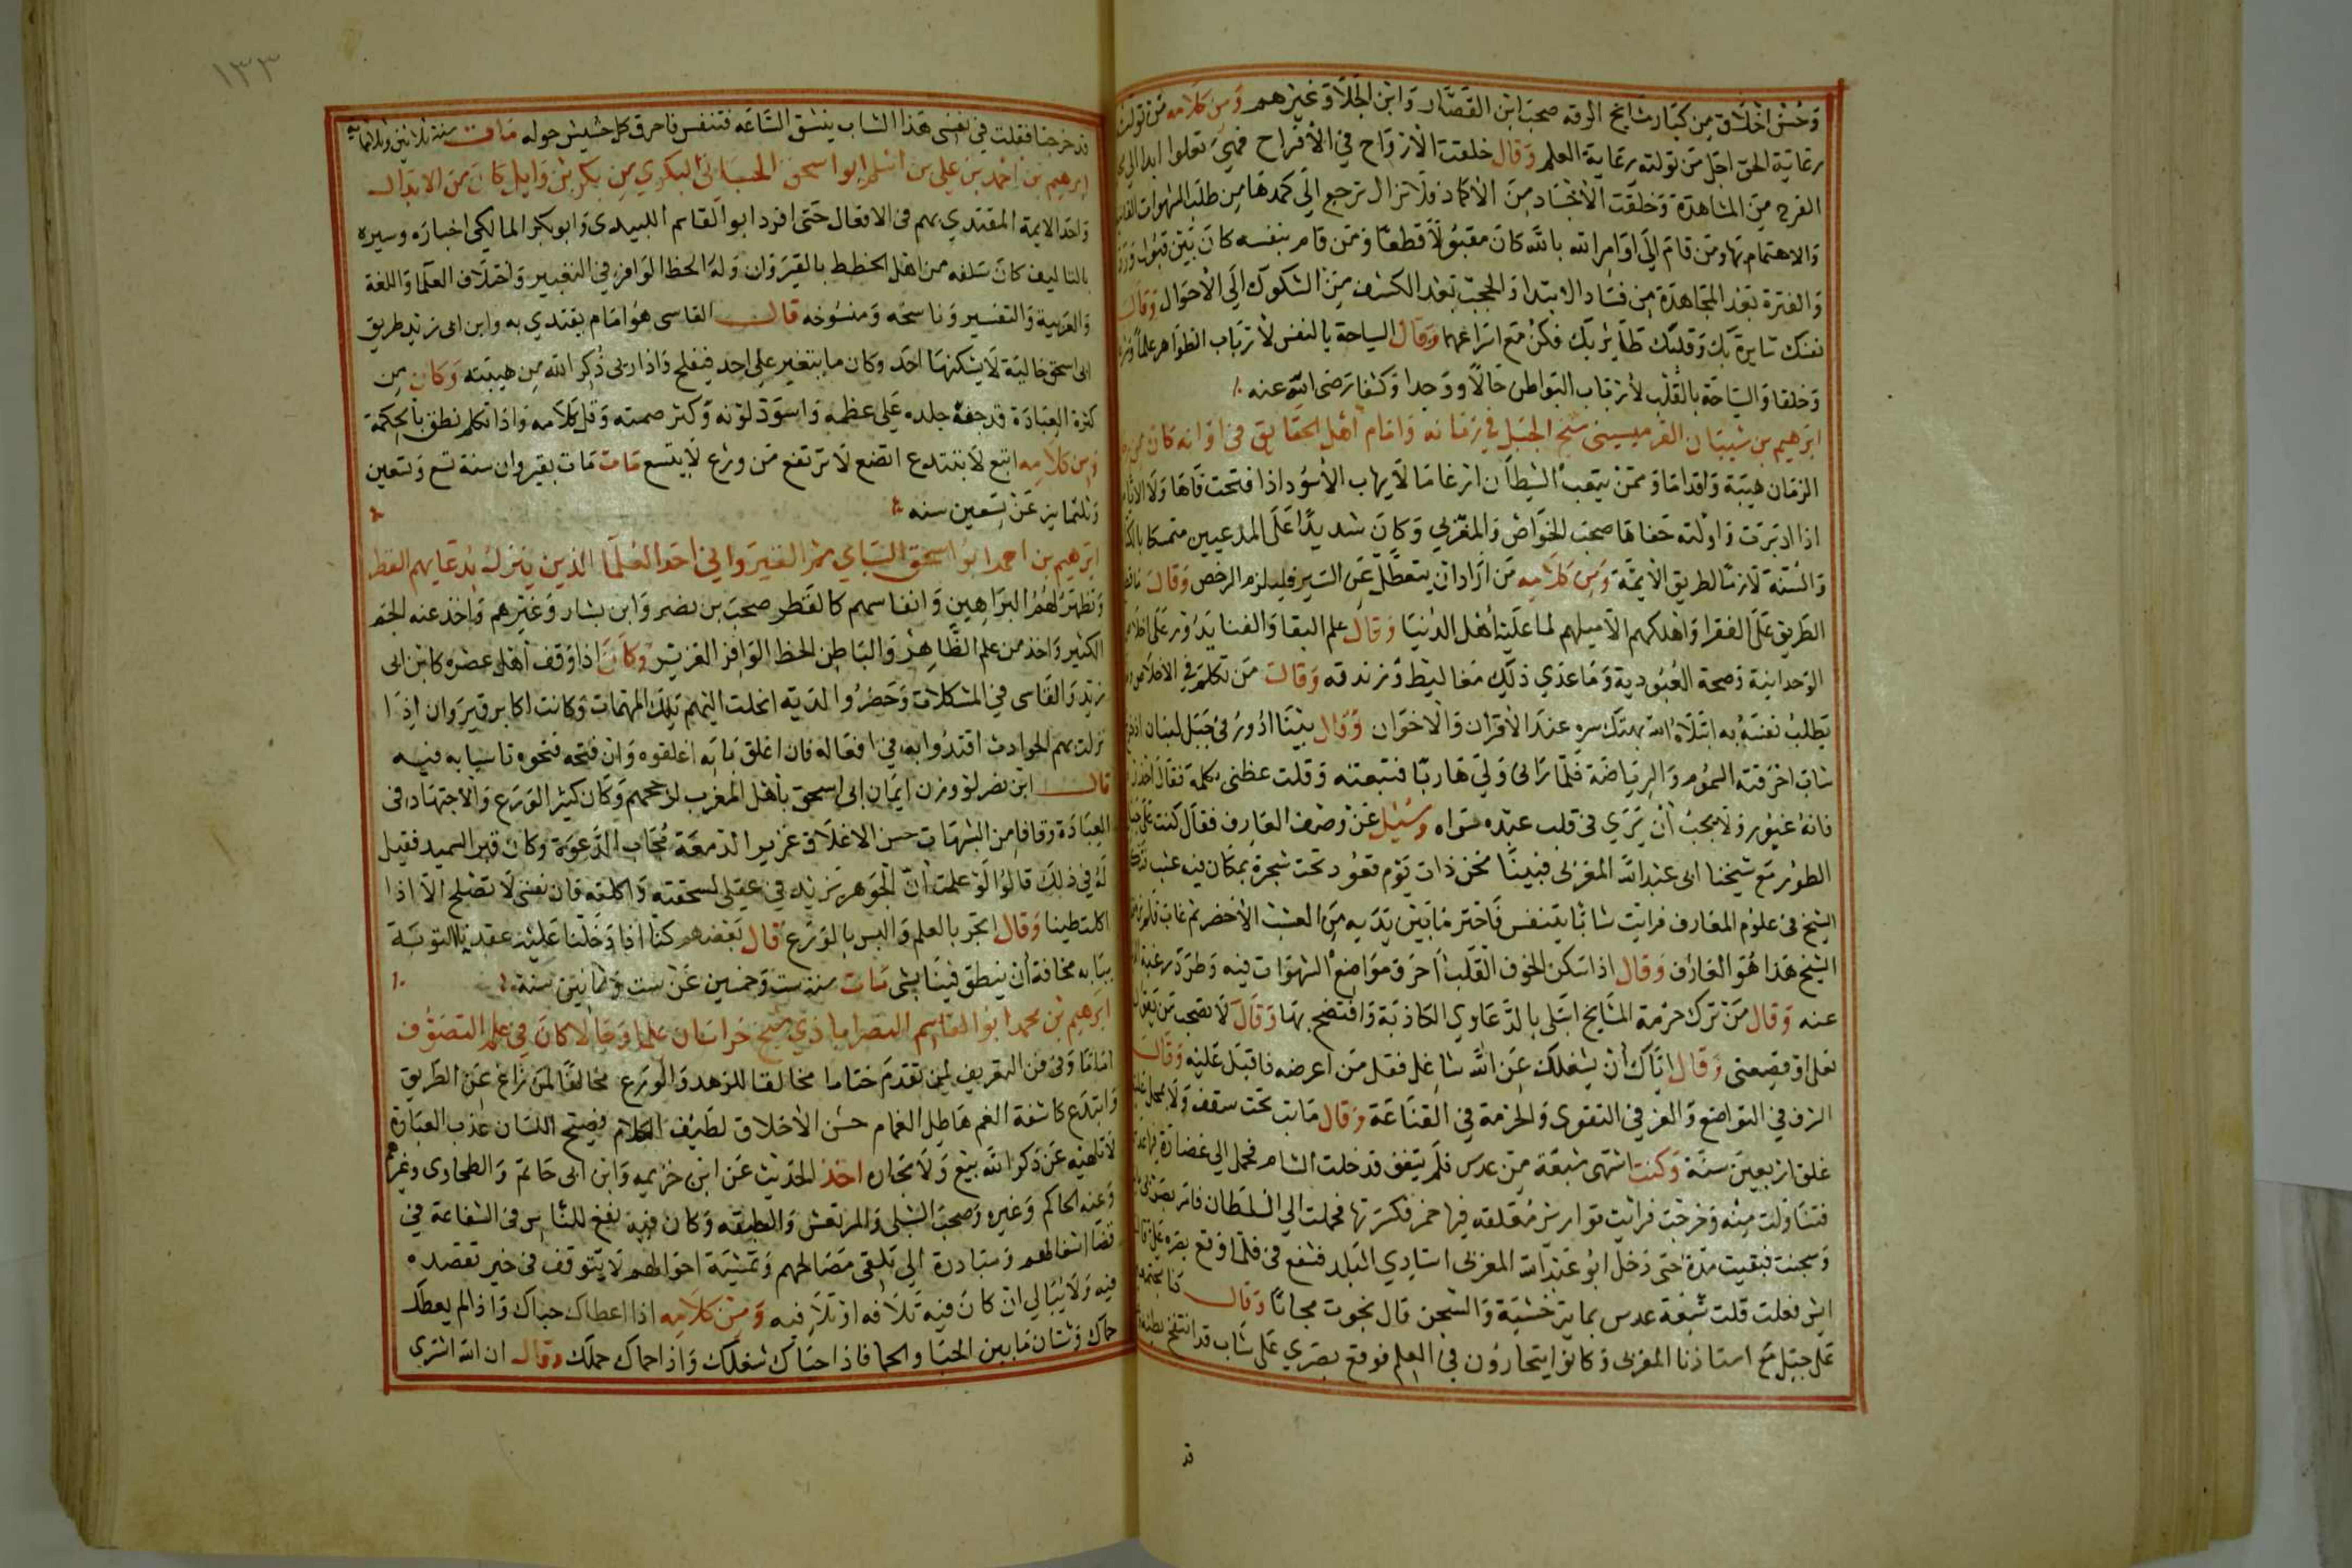 وَحُسْن اخلاق من كبار مشايخ الرقه صحب ابن القصار وَابن الجلا وَغيرهم وَمن كلامه من تولته
رعاية الحق اجل من تولته رعاية العلم وَقال خلقت الارواح في الافراح فهي تعلوا ابدا الي
الفرح من المشاهدة وَخلقت الاجساد من الاكماد فلا تزال ترجع الي كمدها من طلب الشهوات
وَالاهتمام بها ومن قام الي اوَامر الله بالله كان مقبولا قطعا وَمن قام بنفسه كان بين قبول
وَالفترة بعد المجاهدة من فساد الابتدا وَالحجب بعد الكشف من السكوك الي الاحوال وَقال
نفسك سايرة بك وَقلبك طاير بك فكن مع اسراعهما وَقال السياحة بالنفس لارباب الظواهر علما
وَخلقا وَالسياحة بالقلب لارباب البواطن حالا ووجدا وَكشفا رضى الله عنه
ابرهيم بن شيبان القرميسيني شيخ الجبل في زمانه وَامام اهل الحقايق في اوانه كان
الزمان هيبة وَاقداما وَممن يتعب الشيطان ارغاما لا يهاب الاسود اذا فتحت فاها وَلا
اذا ادبرت وَاولته حفاها صحب الخواص وَالمغربي وَكان شديدا على المدعيين متمسكا
وَالسنة لازما لطريق الايمة وَمن كلامه من اراد ان يتعطل عن السير فليلزم الرخص وَقال
الطريق على الفقرا وَاهلكهم الا ميلهم لما عليه اهل الدنيا وَقال علم البقا وَالفنا يدور على
الوحدانية وَصحة العبودية وَما عدي ذلك مغاليط وَزندقه وَقال من تكلم في الاخلاص
يطلب نفسه به ابتلاه الله بهتك سره عند الاقران وَالاخوان وَقال بينا ادور في جبل لبنان
شاب احرقته السموم وَالرياضة فلما رانى ولي هاربا فتبعته وَقلت عظنى بكلمة فقال احذر
فانه غيور وَلا يحب ان يري فى قلب عبده سواه وسيل عن وصف العارف فقال كنت على
الطور مع شيخنا ابى عبد الله المغربي فبينا نحن ذات يوم قعود تحت شجرة بمكان فيه عشب
الشيخ فى علوم المعارف فرايت شابا يتنفس فاحترق مابين يديه من العشب الاخضر ثم غاب فلم
الشيخ هذا هو العارف وَقال اذا سكن الخوف القلب احرق مواضع الشهوات فيه وَطرد رغبة
عنه وَقال من ترك حرمة المشايخ ابتلى بالدعاوي الكاذبة وَافتضح بها وَقال لا تصحب من يقول
نعلي او قصعتى وَقال اياك ان يشغلك عن الله شاغل فقل من اعرضه فاقبل عليه وَقال
الشرف في التواضع وَالعز في التقوى وَالحرمة في القناعة وَقال مابت تحت سقف وَلا
غلق اربعين سنة وَكنت اشتهى شبعة من عدس فلم يتفق فدخلت الشام فحمل الي غضارة فيها
فتناولت منه وَخرجت فرايت قوارير معلقه فيها خمر فكسرتها فحملت الي السلطان فامر
وَسجنت فبقيت مدة حتى دخل ابو عبد الله المغربي استاذي البلد فشفع فى فلما وقع بصره على قال
ايش فعلت قلت شبعة عدس بمايتى خشبة وَالسجن قال نجوت مجانا وَقال
على جبل مع استاذنا المغربى وَكانوا يتجارون في العلم فوقع بصري على شاب قد انتفخ
قد
١٣٣
قد خرجنا فقلت في نفسى هذا الشاب ينشق الساعه فتنفس فاحرق كل حشيش حوله مات سنة ثلاثين وثلاثمايه
ابرهيم بن احمد بن علي بن اسلم ابو اسحق الجبنيانى البكري من بكر بن وَايل كان من الابدال
وَاحد الايمة المقتدي بهم فى الافعال حتى افرد ابو القاسم اللبيدى وَابو بكر المالكى اخباره وسيره
بالتاليف كان سلفه من اهل الخطط بالقيروان وَله الحظ الوافر في التعبير وَاختلاف العلما وَاللغة
وَالعربية وَالتفسير وَناسخه وَمنسوخه قال القاسى هو امام يقتدي به وابن ابى زيد طريق
ابى اسحق خالية لا يسكنها احد وكان ما يتغير على احد فيفلح وَاذا ريى ذكر الله من هيبته وَكان من
كثرة العبادة قد جف جلده على عظمه وَاسود لونه وَكثر صمته وَقل كلامه وَاذا تكلم نطق بالحكمة
وَمن كلامه اتبع لا تبتدع اتضع لا ترتفع من ورع لا يتسع مات مات بقيروان سنة تسع وَتسعين
وَثلثماية عن تسعين سنه
ابرهيم بن احمد ابو اسحق السباي ثم القيرواني احد العلما الذين ينزل بدعايهم القطر
وَتظهر لهم البراهين وَانفاسهم كالقطر صحب بن نصر وَابن بشار وَغيرهم وَاخذ عنه الجم
الكثير وَاخذ من علم الظاهر وَالباطن الحظ الوافر الغزير وَكان اذا وَقف اهل عصره كابن ابى
زيد وَالقاسى في المشكلات وَحضروا لديه انحلت اليهم تلك المهمات وَكانت اكابر قيروان اذا
نزلت بهم الحوادث اقتدوا به في افعاله فان اغلق بابه اغلقوه وَان فتحه فتحوه تاسيا به فيه
قال ابن نصر لو وزن ايمان ابى اسحق باهل المغرب لرجحهم وَكان كثير الورع وَالاجتهاد فى
العبادة وقافا من الشبهات حسن الاخلاق غزير الدمعة مجاب الدعوة وكان قير السميد فقيل
له في ذلك قالوا لو علمت ان الجوهر يزيد في عقلى لسحقته وَاكلته فان نفسى لا تصلح الا اذا
اكلت طينا وَقال اتجر بالعلم وَالبس بالورع قال بعضهم كنا اذا دخلنا عليه عقدنا التوبة
ببابه مخافة ان ينطق فينا بشى مات سنة ست وَخمسين عن ست وَثمانين سنة
ابرهيم بن محمد ابو القاسم النصراباذي شيخ خراسان علما وَحالا كان في علم التصوف
اماما وَفى فن التعريف لمن تقدم ختاما مخالفا للزهد وَالورع مخالفا لمن زاغ عن الطريق
وَابتدع كاشفة الغم هاطل الغمام حسن الاخلاق لطيف الكلام فصيح اللسان عذب العبارة
لا تلهيه عن ذكر الله بيع وَلا تجاره اخذ الحديث عن ابن خزيمه وَابن ابى حاتم وَالطحاوى وغيرهم
وَعنه الحاكم وَغيره وَصحب الشبلى وَالمرتعش وَالطبقه وَكان فيه نفع للناس فى الشفاعة في
قضا اشغالهم وَمبادرة الي تلقى مصالحهم وَتمشية احوالهم لا يتوقف فى خير تقصده
فيه وَلا يبالي ان كان فيه تلافه او تلا فيه وَمن كلامه اذا اعطاك حباك وَاذا لم يعطك
حماك وَشتان مابين الحبا والحما فاذا حباك شغلك وَاذا حماك حملك وَقال ان الله اشترى